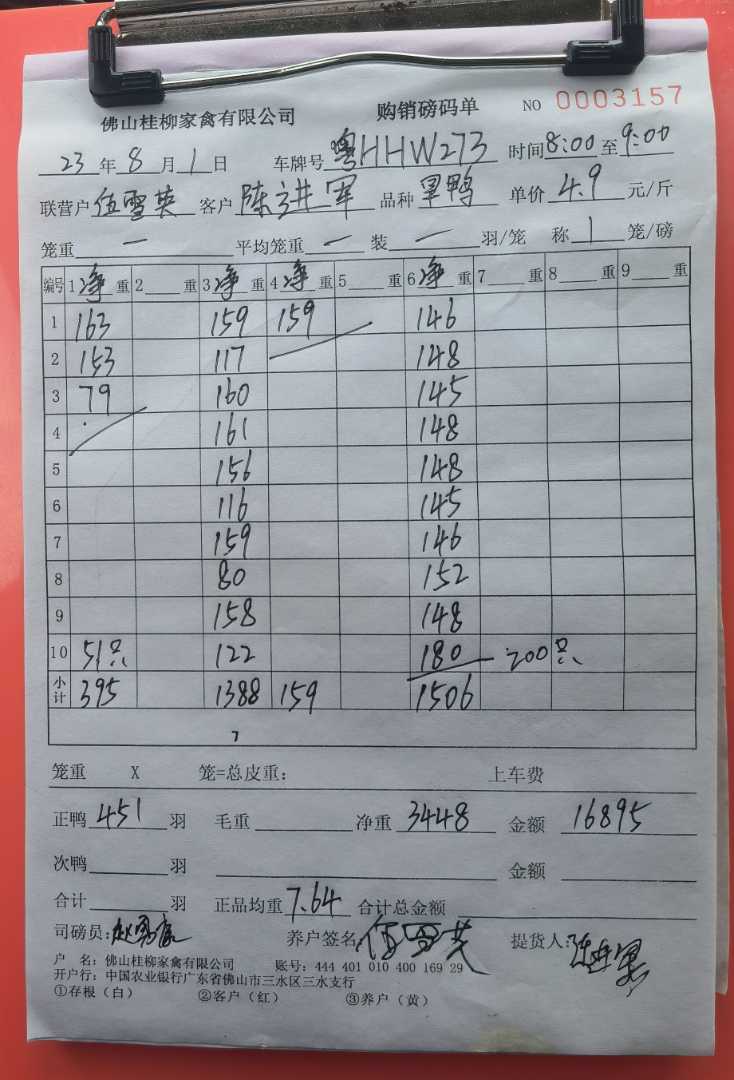 佛山桂柳家禽有限公司 购销磅码单 NO 0003157
23 年 8 月 1 日 车牌号 粤HHW273 时间 8:00 至 9:00
联营户 伍雪英 客户 陈进军 品种 旱鸭 单价 4.9 元/斤
笼重 — 平均笼重 — 装 — 羽/笼 称 1 笼/磅
编号 1 净 重 2 重 3 净 重 4 净 重 5 重 6 净 重 7 重 8 重 9 重
1 163 159 159 146
2 153 117 148
3 79 160 145
4 161 148
5 156 148
6 116 145
7 159 146
8 80 152
9 158 148
10 51只 122 180 200只
小计 395 1388 159 1506
笼重 X 笼=总皮重: 上车费
正鸭 451 羽 毛重 净重 3448 金额 16895
次鸭 羽 金额
合计 羽 正品均重 7.64 合计总金额
司磅员: 养户签名 伍雪英 提货人: 陈进军
户 名: 佛山桂柳家禽有限公司 账号: 444 401 010 400 169 29
开户行: 中国农业银行广东省佛山市三水区三水支行
①存根（白） ②客户（红） ③养户（黄）